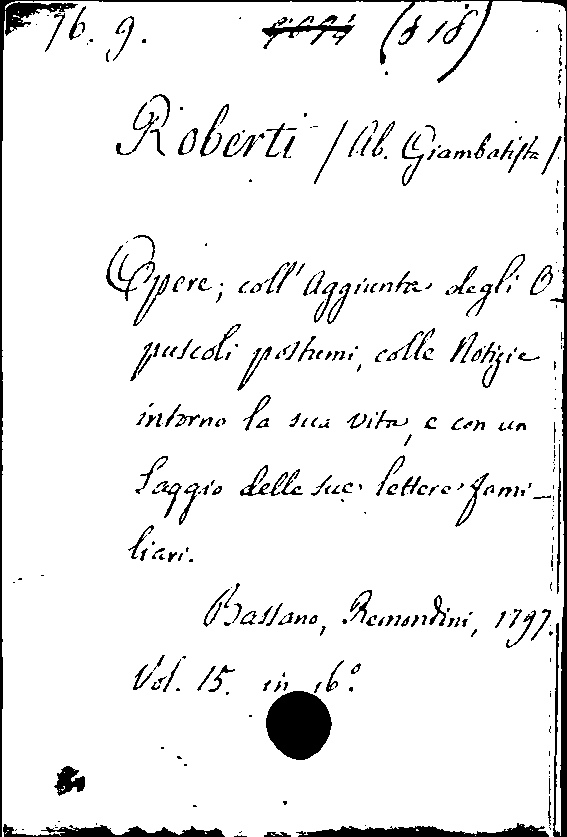 76. 9. (818)
Roberti / Ab. Giambatista /
Opere; coll' Aggiunta degli O_
puscoli postumi, colle Notizie
intorno la sua vita, e con un
Saggio delle sue lettere fami_
liari.
Bassano, Remondini, 1797.
Vol. 15. in 16º.